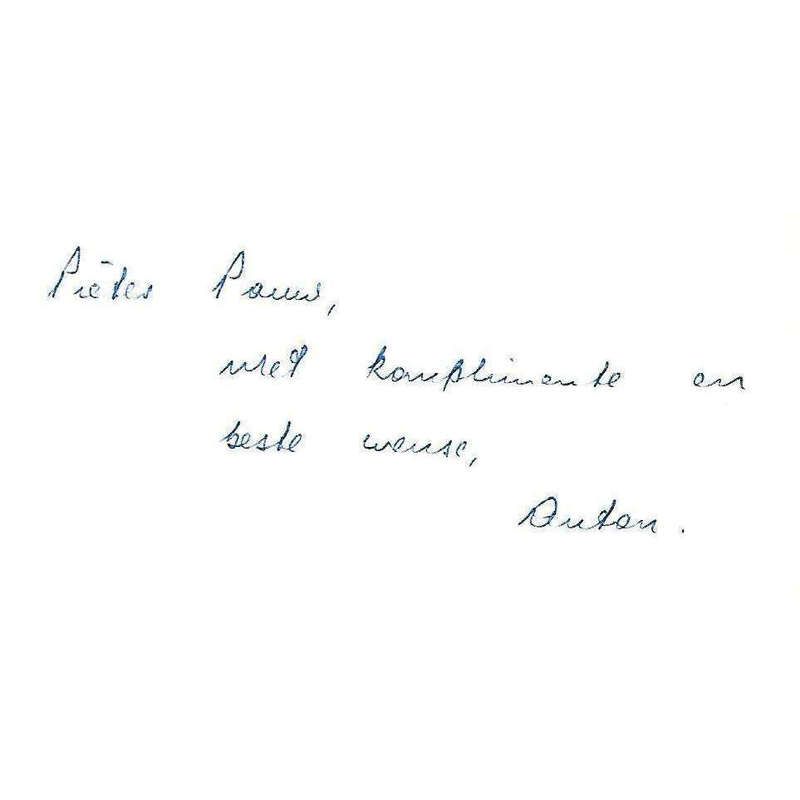 Pieter Pauw,
met komplimente en
beste wense,
Anton.